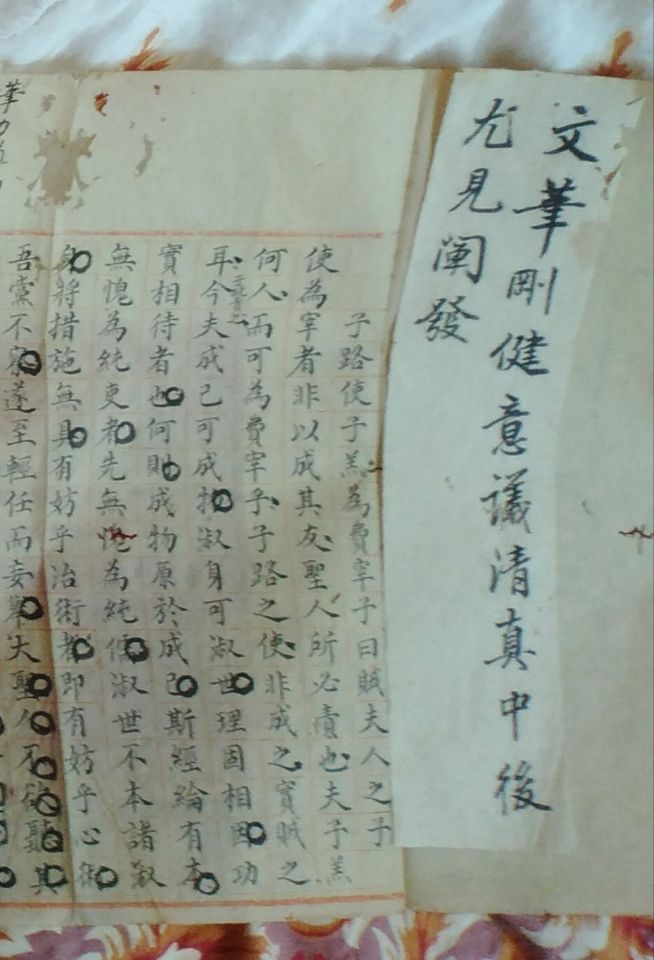 文筆剛健意議清真中後
尤見闡發
子路使子羔為費宰子曰賊夫人之子
使為宰者非以成其友聖人所必責也夫子羔
何人而可為費宰乎子路之使非成之實賊之
耳今夫成已可成物淑身可淑世理固相因功
實相待者也何則成物原於成已斯經綸有本
無愧為純吏者先無愧為純儒淑世不本諸淑
身將措施無具有妨乎治術者即有妨乎心術
吾黨不察遂至輕任而妄舉大聖人不欲斵其
筆力